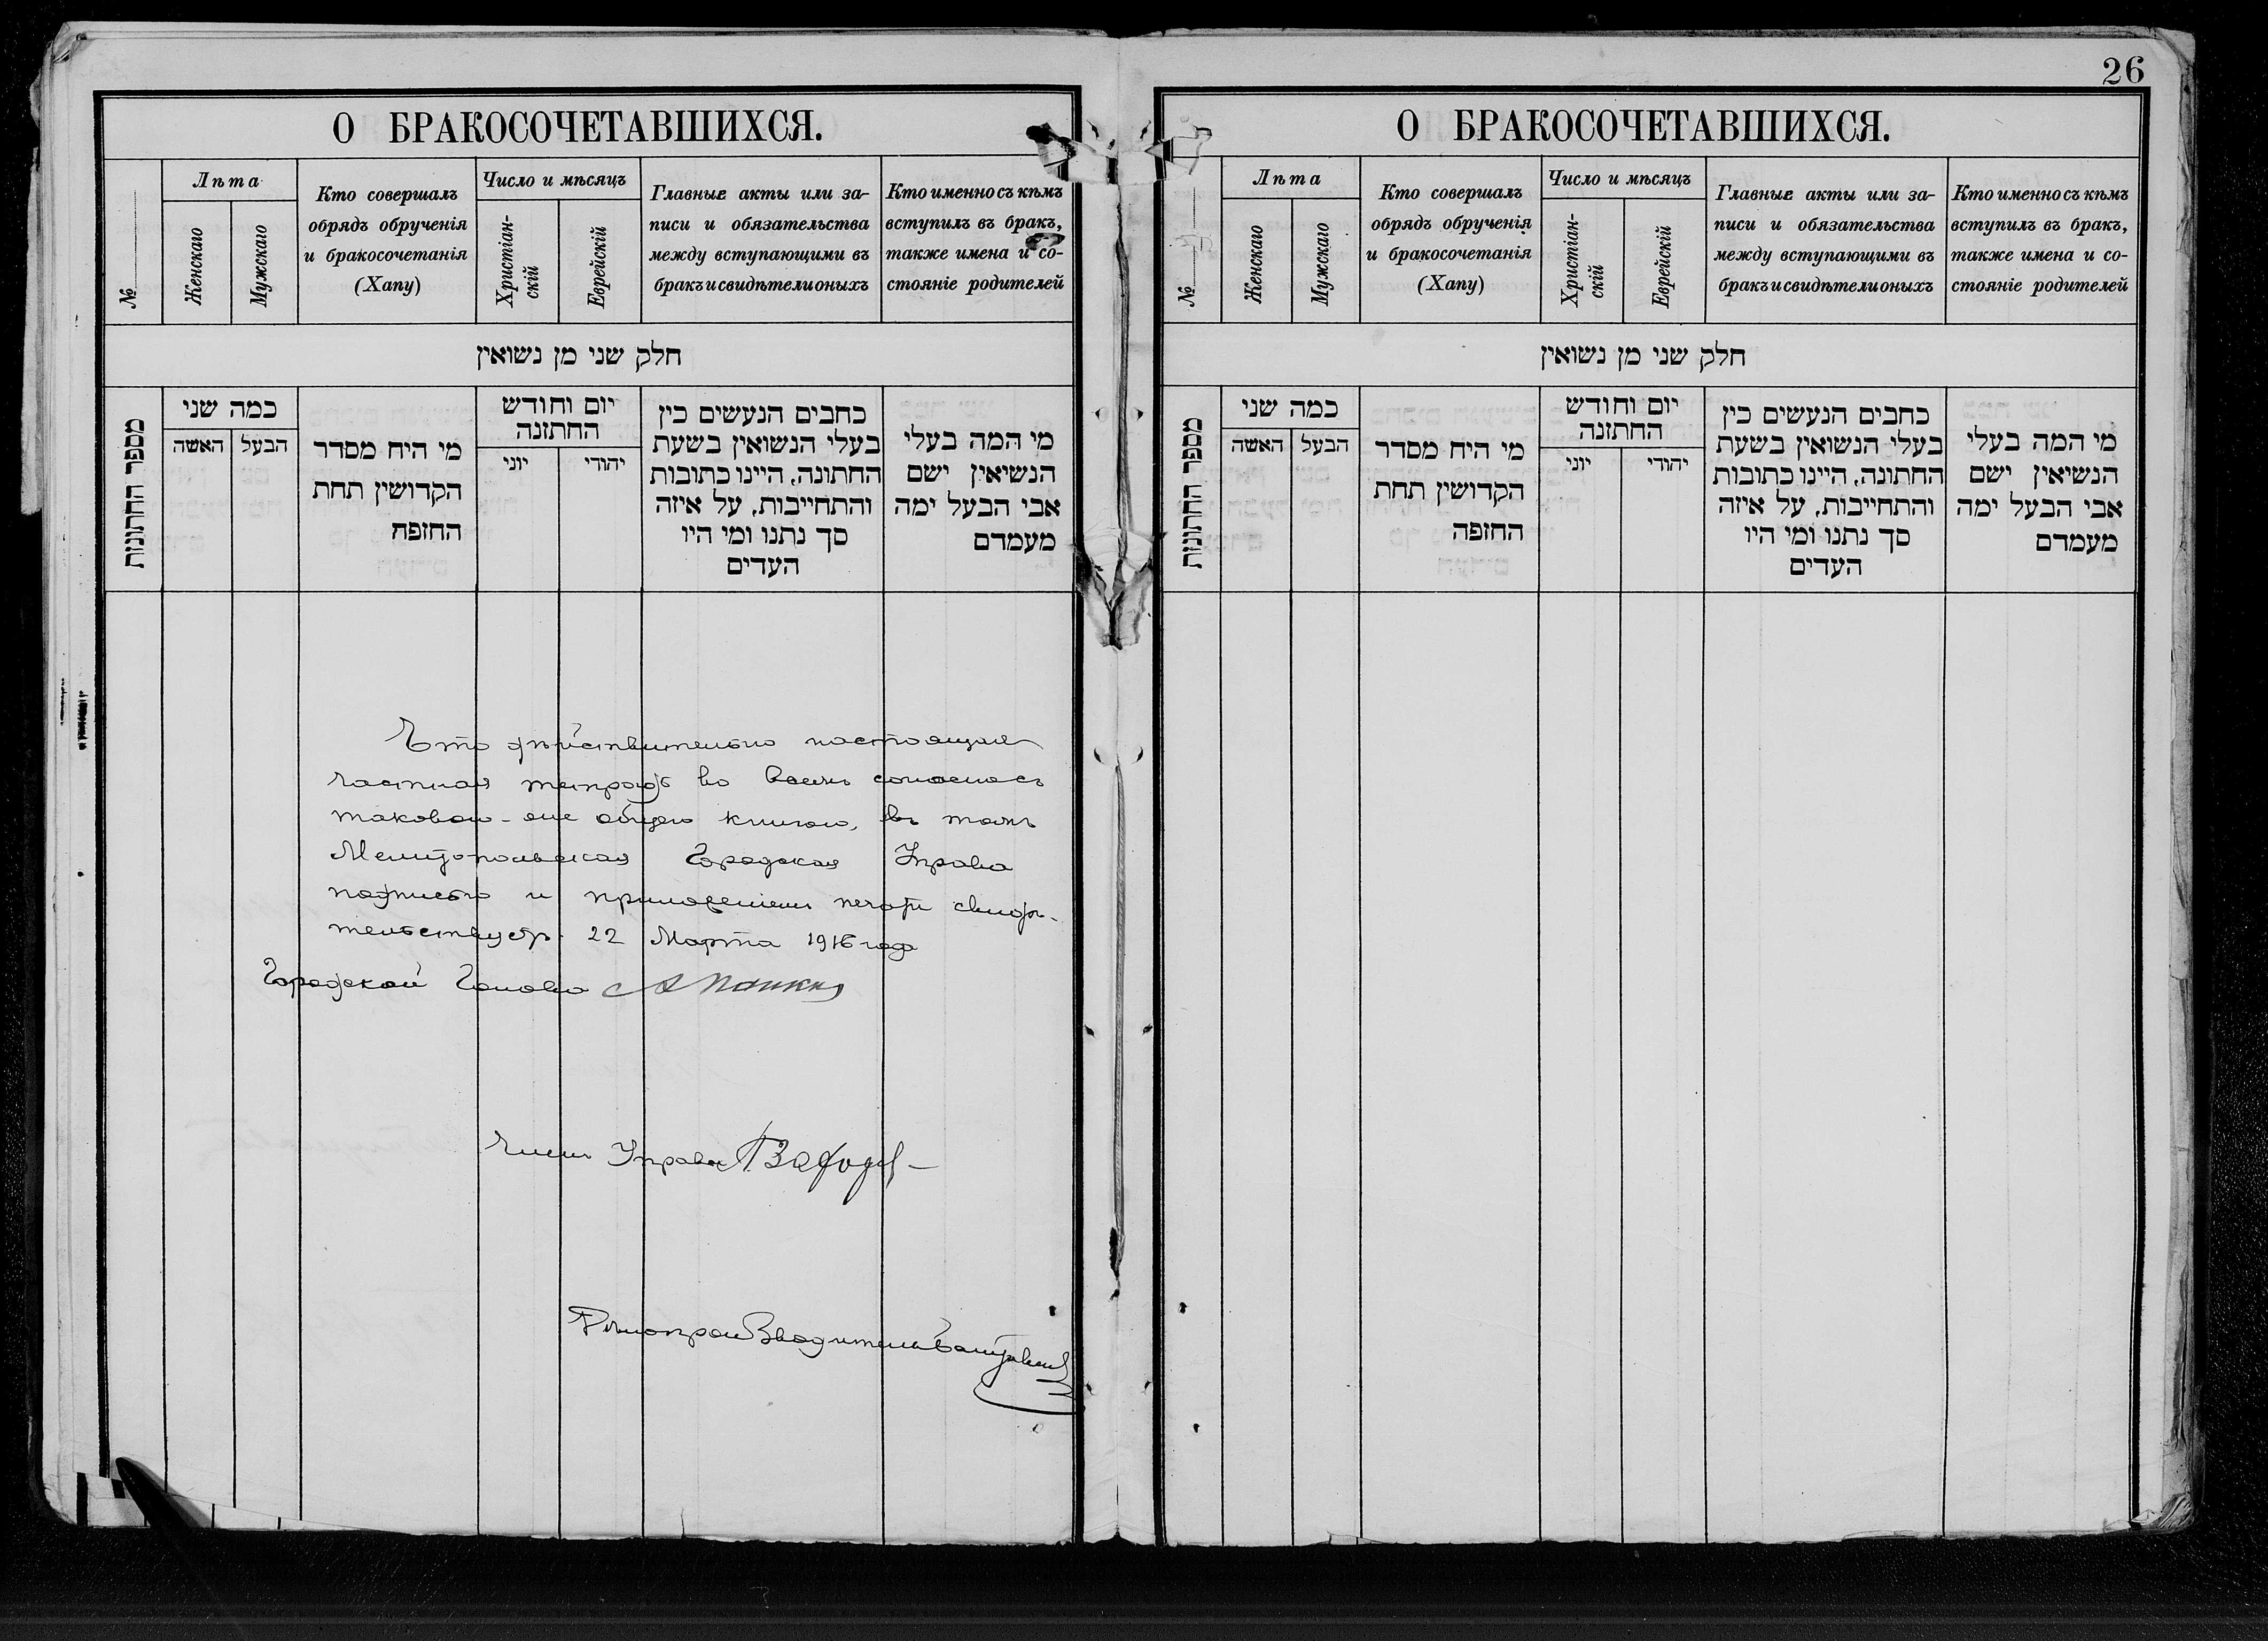 26
О БРАКОСОЧЕТАВШИХСЯ.
№
Лѣта
Женскаго
Мужскаго
Кто совершалъ
обрядъ обрученія
и бракосочетанія
(Хапу)
Число и мѣсяцъ
Христіан-
скій
Еврейскій
Главные акты или за-
писи и обязательства
между вступающими въ
бракъ и свидѣтели оныхъ
Кто именно съ кѣмъ
вступилъ въ бракъ,
также имена и со-
стояніе родителей
חלק שני מן נשואין
מספר החתונות
כמה שני
האשה
הבעל
מי היח מסדר
הקדושין תחת
החופה
יום וחודש
החתונה
יוני
יהודי
כחבים הנעשים כין
בעלי הנשואין בשעת
החתונה, היינו כתובות
והתחייבות, על איזה
סך נתנו ומי היו
העדים
מי המה בעלי
הנשיאין ישם
אבי הבעל ימה
מעמדם
Что дѣйствительно настоящая
частная тетрадь во всемъ согласна съ
таковою-же общею книгою, въ томъ
Мелитопольская Городская Управа
подписью и приложеніемъ печати свидѣ-
тельствуетъ. 22 Марта 1916 года
Городской Голова
Членъ Управы
Дѣлопроизводитель
О БРАКОСОЧЕТАВШИХСЯ.
№
Лѣта
Женскаго
Мужскаго
Кто совершалъ
обрядъ обрученія
и бракосочетанія
(Хапу)
Число и мѣсяцъ
Христіан-
скій
Еврейскій
Главные акты или за-
писи и обязательства
между вступающими въ
бракъ и свидѣтели оныхъ
Кто именно съ кѣмъ
вступилъ въ бракъ,
также имена и со-
стояніе родителей
חלק שני מן נשואין
מספר החתונות
כמה שני
האשה
הבעל
מי היח מסדר
הקדושין תחת
החופה
יום וחודש
החתונה
יוני
יהודי
כחבים הנעשים כין
בעלי הנשואין בשעת
החתונה, היינו כתובות
והתחייבות, על איזה
סך נתנו ומי היו
העדים
מי המה בעלי
הנשיאין ישם
אבי הבעל ימה
מעמדם